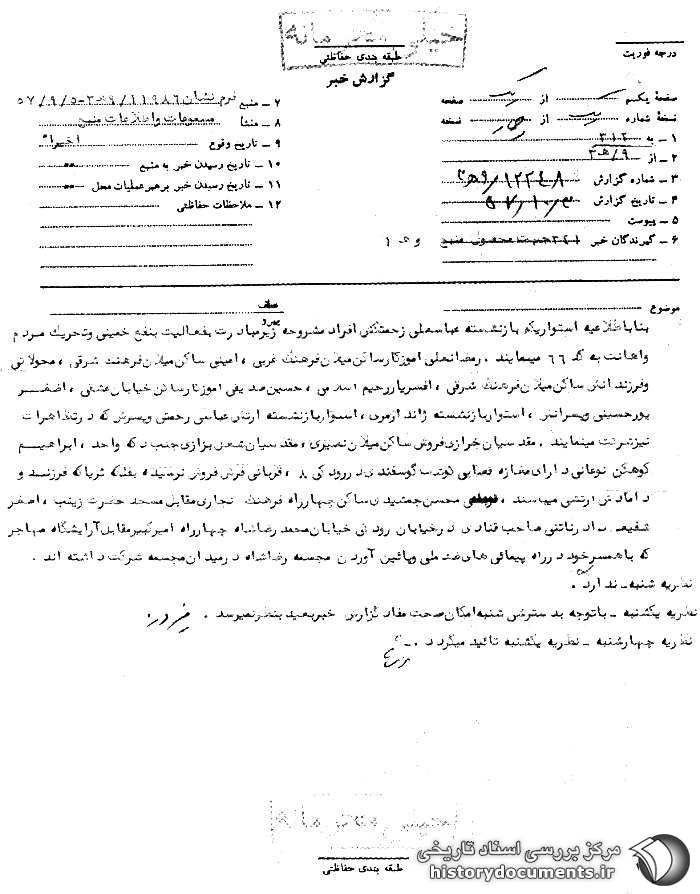 خیلی محرمانه
درجه فوریت
طبقه بندی حفاظتی
گزارش خبر
صفحهٔ یکم از یک صفحه
نسخهٔ شماره یک از چهار نسخه
۱ ـ به ۳۱۲
۲ ـ از ۹/هـ۳
۳ ـ شماره گزارش ۱۲۲۴۸/۹هـ۳
۴ ـ تاریخ گزارش ۵۷/۱۰/۳
۵ ـ پیوست
۶ ـ گیرندگان خبر
۷ ـ منبع
۸ ـ منشأ مسموعات واطلاعات منبع
۹ ـ تاریخ وقوع اخیرا"
۱۰ ـ تاریخ رسیدن خبر به منبع --
۱۱ ـ تاریخ رسیدن خبر برهبر عملیات محل --
۱۲ ـ ملاحظات حفاظتی
موضوع
بنا باطلاعیه استواریکم بازنشسته عباسعلی زحمتکش افراد مشروحه زیر مبادرت بفعالیت بنفع خمینی وتحریک مردم
واهانت به کد ۶۶ مینمایند . رمضانعلی آموزگار ساکن میلان فرهنگ غربی ، امینی ساکن میلان فرهنگ شرقی ، محولاتی
وفرزندانش ساکن میلان فرهنگ شرقی ، افسریار رحیم اسلامی ، حسین صدیقی آموزگار ساکن خیابان عشقی ، اصغر
پورحسینی وپسرانش ، استوار بازنشسته ژاندارمری ، استوار بازنشسته ارتش عباس رحمتی وپسرش که در تظاهرات
نیز شرکت مینمایند . مقدسیان خرازی فروش ساکن میلان نصیری ، مقدسیان شغل بزازی جنب دکه واحد ، ابراهیم
کوهکن نوغانی دارای مغازه قصابی گوشت گوسفندی در رودکی ۸ ، قربانی فرش فروش نرسیده بفلکه ثریا که فرزند و
دامادش ارتشی میباشند ، محسن جمشیدی ساکن چهارراه فرهنگ نجاری مقابل مسجد حضرت زینب ، اصغر
شفیعی صاحب قنادی در خیابان رودکی خیابان محمدرضاشاه چهارراه امیرکبیر مقابل آرایشگاه مهاجر
که باهمسر خود در راه پیمائی های ضد ملی وپائین آوردن مجسمه رضاشاه در میدان مجسمه شرکت داشته اند .
نظریه شنبه ـ ندارد .
نظریه یکشنبه ـ باتوجه بدسترسی شنبه امکان صحت مفاد گزارش خبر بعید بنظر نمیرسد .
نظریه چهارشنبه ـ نظریه یکشنبه تائید میگردد .
طبقه بندی حفاظتی
مرکز بررسی اسناد تاریخی
historydocuments.ir